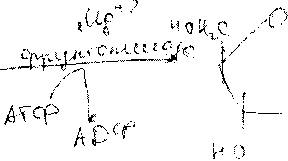 Mg⁺²
фруктокиназа
HOH₂C O
АТФ
АДФ
HO